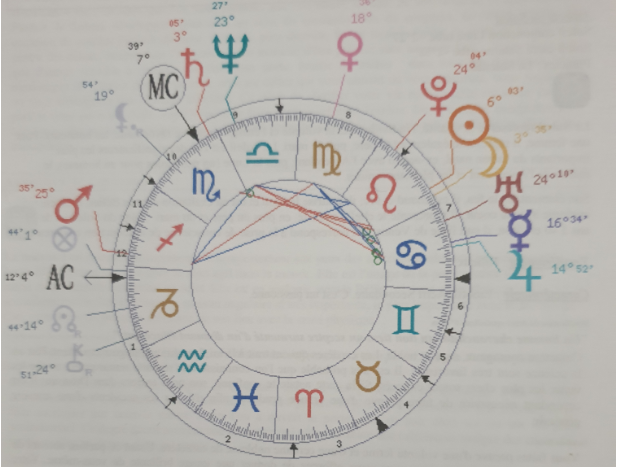 27'
23°
05'
3°
39'
7°
MC
54'
19°
18°
04'
24°
03'
6°
3° 35'
24° 18'
16° 34'
14° 52'
35' 25°
44' 1°
12' 4°
AC
44' 14°
51' 24°
R
1
2
3
4
5
6
7
8
9
10
11
12